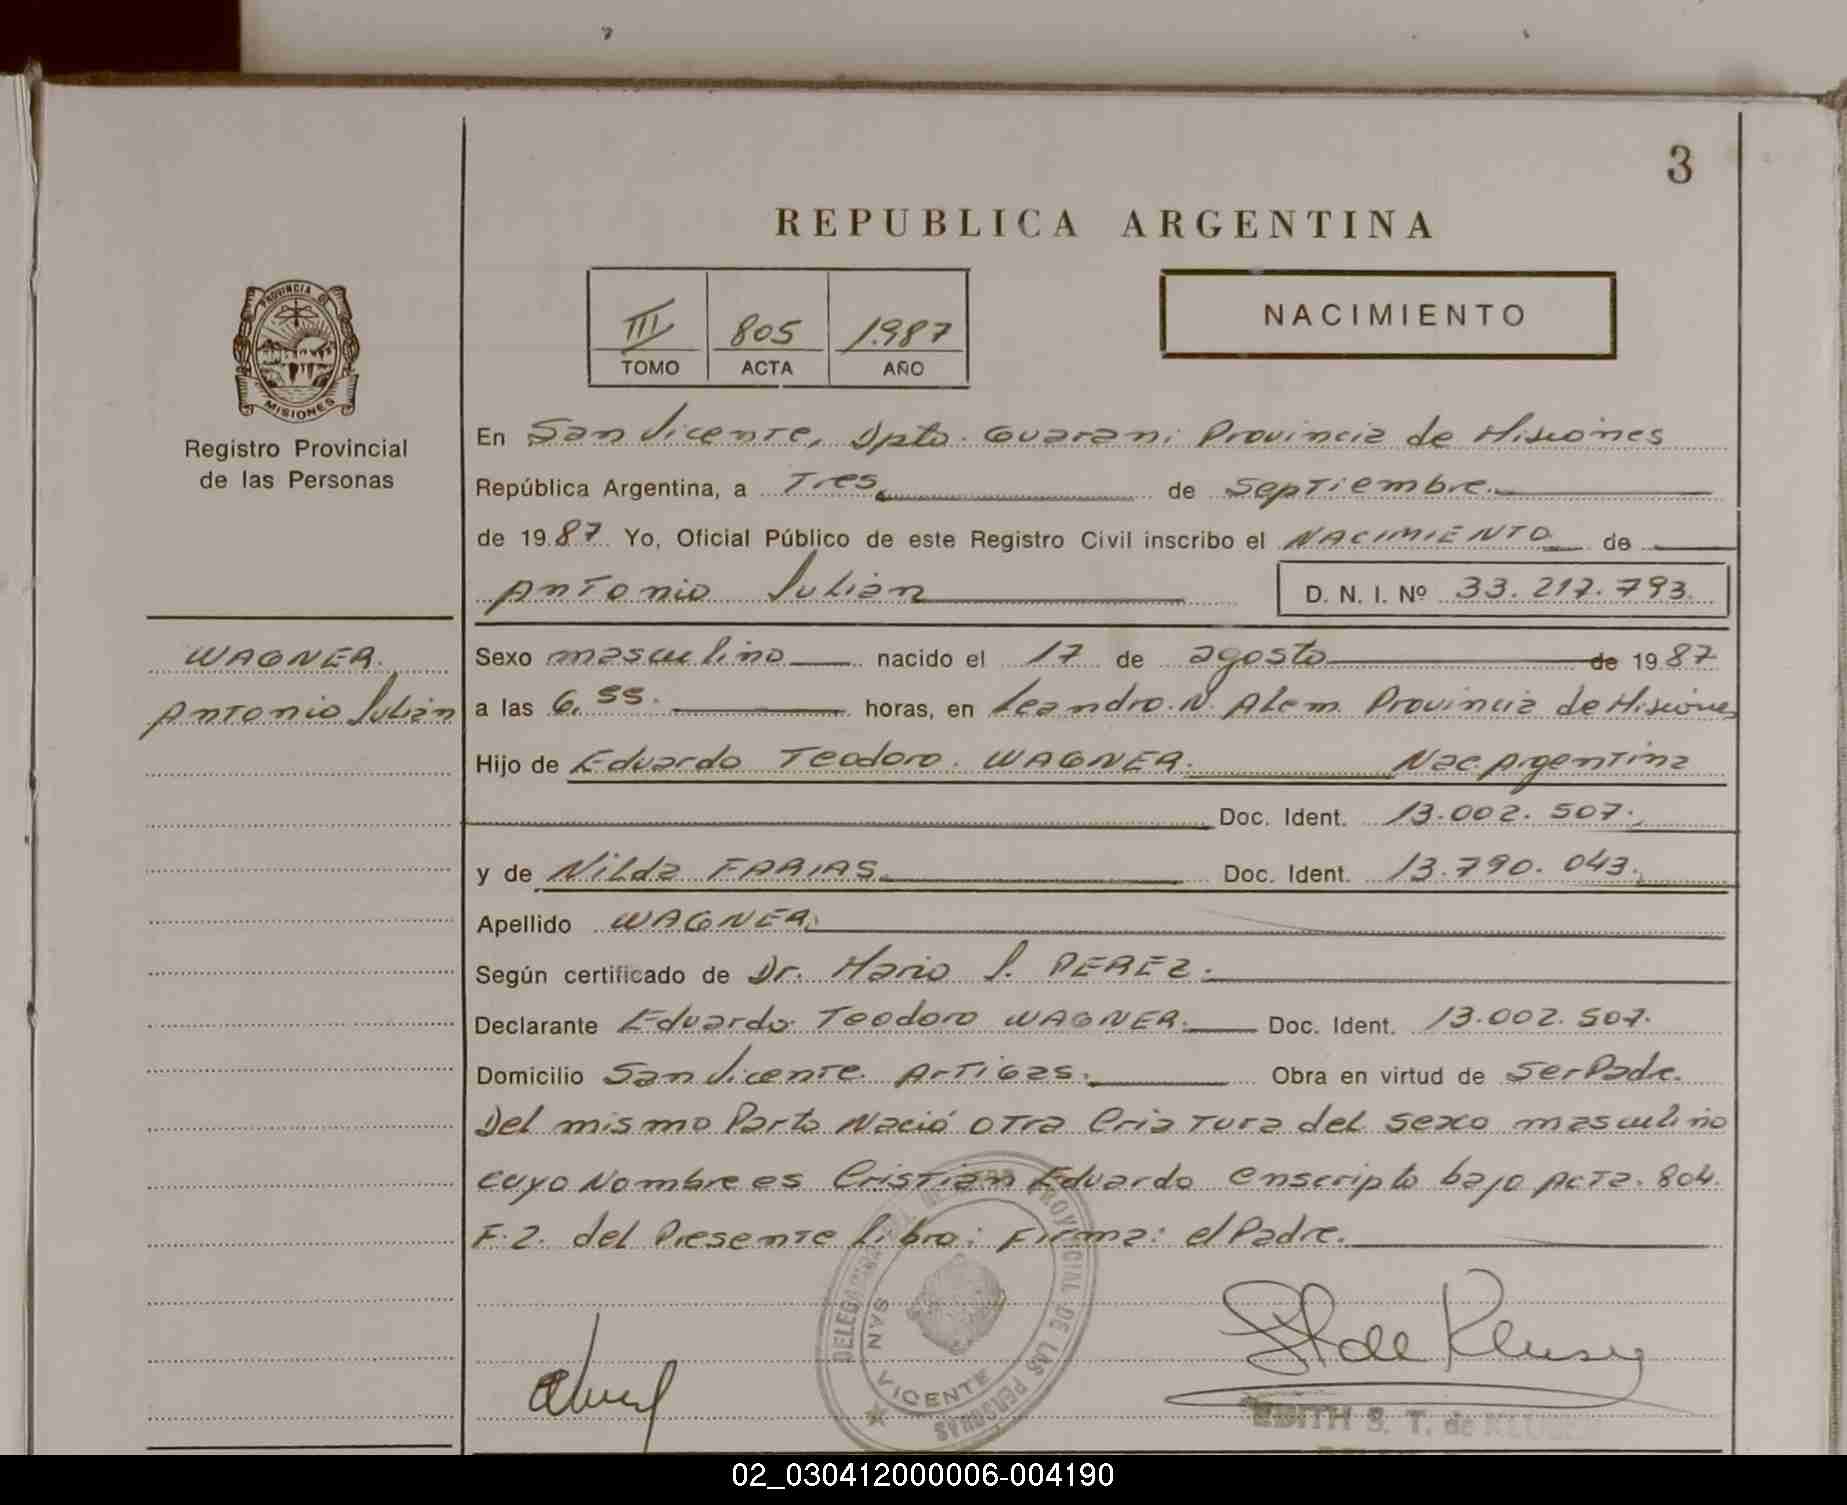 3
REPUBLICA ARGENTINA
III 805 1987
TOMO ACTA AÑO
NACIMIENTO
PROVINCIA DE
MISIONES
Registro Provincial
de las Personas
WAGNER.
Antonio Julián
En San Vicente, Dpto. Guarani Provincia de Misiones
República Argentina, a Tres de Septiembre.
de 1987 Yo, Oficial Público de este Registro Civil inscribo el NACIMIENTO de
Antonio Julián D. N. I. Nº 33.217.793.
Sexo masculino nacido el 17 de agosto de 1987
a las 6,55. horas, en Leandro. N. Alem Provincia de Misiones
Hijo de Eduardo Teodoro. WAGNER. Nac. Argentina
Doc. Ident. 13.002.507.
y de Nilda FARIAS. Doc. Ident. 13.790.043.
Apellido WAGNER.
Según certificado de Dr. Mario J. PEREZ.
Declarante Eduardo Teodoro WAGNER. Doc. Ident. 13.002.507.
Domicilio San Vicente. Artigas. Obra en virtud de Ser Padre.
Del mismo Parto Nació otra Criatura del sexo masculino
cuyo Nombre es Cristian Eduardo enscripto bajo Acta. 804.
F. 2. del Presente libro: Firma: el Padre.
DELEGACION REGISTRO PROVINCIAL DE LAS PERSONAS
SAN VICENTE
EDITH S. T. de
02_030412000006-004190